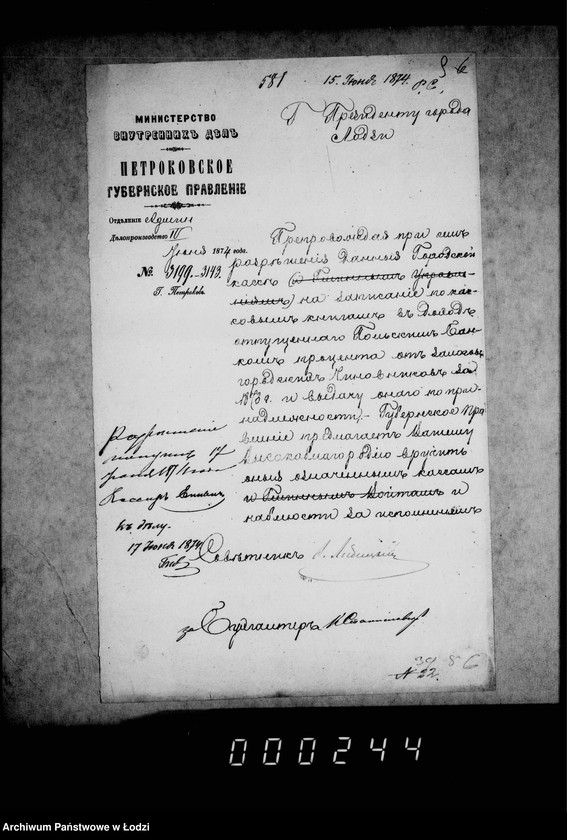 581 15. Июня 1874. 6
МИНИСТЕРСТВО
ВНУТРЕННИХЪ ДѢЛЪ
ПЕТРОКОВСКОЕ
ГУБЕРНСКОЕ ПРАВЛЕНІЕ
Отдѣленіе Админ
Дѣлопроизводство III
Июня 1874 года.
№ 3199-3143.
Г. Петроковъ.
Г Президенту города
Лодзи
Препровождая при семъ
разрѣшенія данныя Городской
кассѣ (и Гминнымъ Управле-
ніямъ) на записаніе по кас-
совымъ книгамъ въ доходъ
отпущеннаго Польскимъ Бан-
комъ процента отъ залоговъ
городскихъ Чиновниковъ за
1873 г. и выдачу онаго по при-
надлежности, – Губернское Пра-
вленіе предлагаетъ Вашему
Высокоблагородію вручить
оныя означеннымъ кассамъ
и Гминнымъ Войтамъ и
наблюсти за исполненіемъ
Разрѣшеніе
получилъ 17
Кассиръ
къ дѣлу.
17 Июня 1874
Совѣтникъ
за Бухгалтеръ
39 86
N 22.
000244
Archiwum Państwowe w Łodzi